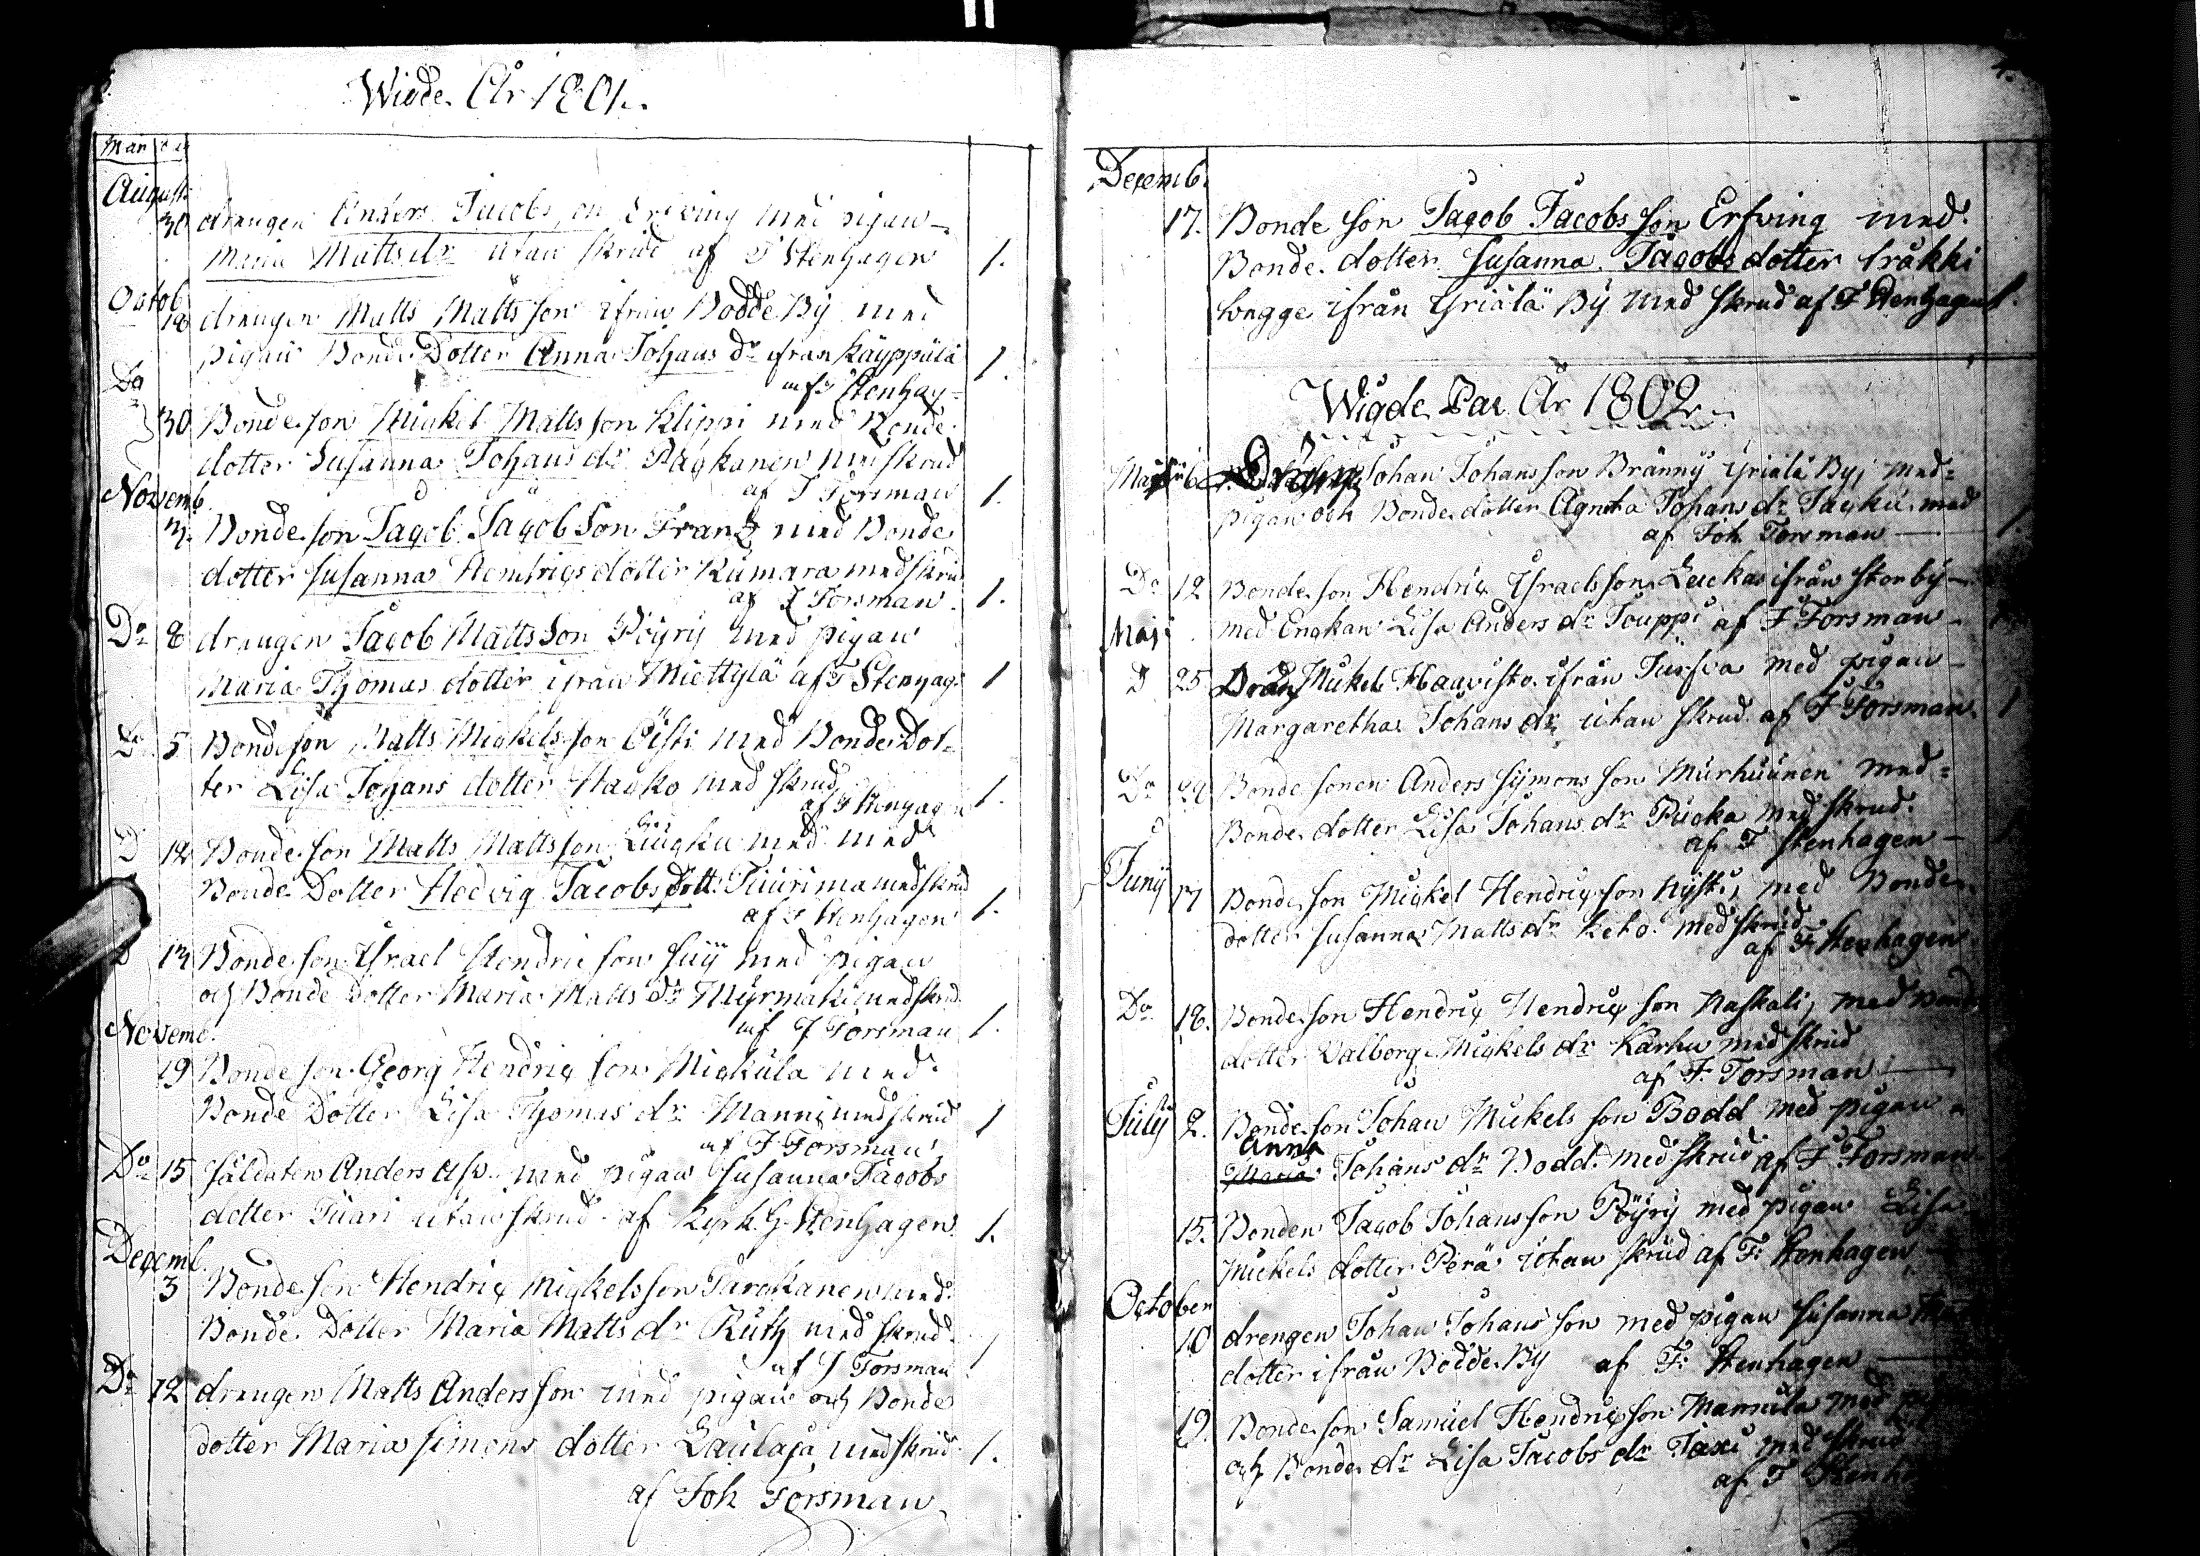 Wigde År 1801.
Mån dag
August:
30 drengen Anders Jacobsson Erfving med pigan
Maria Mattsdr utan skrud af F Stenhagen 1.
Octob.
18 drengen Matts Mattsson ifrån Bodde By med
pigan Bonde Dotter Anna Johans dr ifrån Käyppälä 1.
af F Stenhag
Do
30 Bonde son Mickel Mattsson Klippi med Bonde
dotter Susanna Johans dr Päykanen med skrud
af J Forsman 1.
Novemb.
Bonde son Jacob Jacobson Frantz med Bonde
dotter Susanna Hendrics dotter Kumara med skrud
af J Forsman. 1.
Do 8 drengen Jacob Mattsson Pöyry med pigan
Maria Thomas dotter ifrån Miettylä af F Stenhag: 1
Do 5 Bonde son Matts Mickelsson Eisti med Bonde Dot-
ter Lisa Johans dotter Hauko med skrud
af F Stenhagen 1.
D 12 Bonde son Matts Mattsson med
Bonde Dotter Hedvig Jacobs Dott: Tiurima med skrud
af F Stenhagen 1.
D 13 Bonde son Israel Hendricson Siij med pigan
och Bonde Dotter Maria Matts dr Myrmäki med skrud
af J Forsman 1.
Novemb.
19 Bonde son Georg Hendric son Mickula med
Bonde Dotter Lisa Thomas dr Manni med skrud 1
af J Forsman
Do 15 Soldaten Anders Asp med pigan Susanna Jacobs
dotter Tuari utan skrud af Kyrk H. Stenhagen 1.
Decemb.
3 Bonde son Hendric Mickelsson Tarckanen med
Bonde Dotter Maria Matts dr Ruth med skrud
af J Forsman
Do 12 drengen Matts Andersson med pigan och Bonde
dotter Maria Simons dotter Laulaja med skrud 1.
af Joh Forsman
Decemb.
17. Bonde son Jacob Jacobsson Erfving med
Bonde dotter Susanna Jacobs dotter Kråkki
bagge ifrån Yriälä By med skrud af F Stenhagen 1.
Wigde Par År 1802.
Dräng Johan Johansson Bränny Yriälä By, med
pigan och Bonde dotter Agneta Johans dr Jacku med
af Joh Forsman 1.
Do 12 Bonde son Hendric Israelsson Luckas ifrån Storby
Maji med Enkan Lisa Anders dr Jouppi af J Forsman
D 25 Dräng Mickel Haavisto ifrån Turfva med pigan
Margaretha Johans dr utan skrud af J Forsman. 1
Do 29 Bonde sonen Anders Symonsson Murhuunen med
Bonde dotter Lisa Johans dr Pucka med skrud.
af F Stenhagen
Junij
17 Bonde son Mickel Hendricsson Nysti, med Bonde
dotter Susanna Matts dr Keto med skrud
af F Stenhagen
Do 18. Bonde son Hendric Hendricson Naskali, med Bonde
dotter Valborg Mickels dr Karhu med skrud
af J. Forsman
July 2. Bonde son Johan Mickels son Bodd med pigan
Anna
Maria Johans dr Bodd. med skrud af J Forsman
15. Bonden Jacob Johansson Pöyry med pigan Lisa
Mickels dotter Perä utan skrud af F: Stenhagen
October
10 drengen Johan Johansson med pigan Susanna
dotter ifrån Bodde By af F: Stenhagen
19. Bonde son Samuel Hendricsson Mannula med
och Bonde dr Lisa Jacobs dr Jaxi med skrud
af F